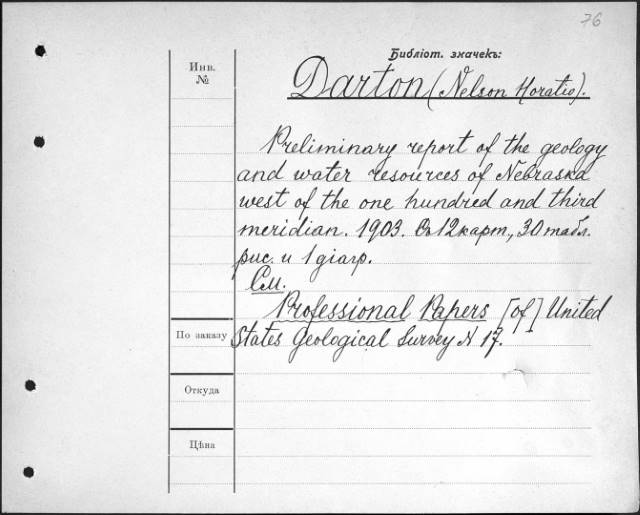 76
Библіот. значекъ:
Инв.
№
Darton (Nelson Horatio).
Preliminary report of the geology
and water resources of Nebraska
west of the one hundred and third
meridian. 1903. Съ 12 карт., 30 табл.
рис. и 1 діагр.
См.
Professional Papers [of] United
States Geological Survey N 17.
По заказу
Откуда
Цѣна